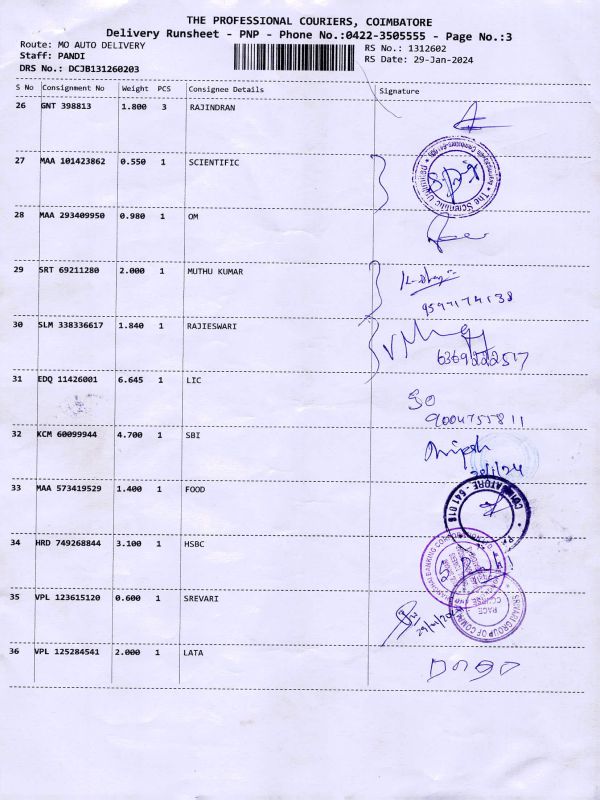 THE PROFESSIONAL COURIERS, COIMBATORE
Delivery Runsheet - PNP - Phone No.:0422-3505555 - Page No.:3
Route: MO AUTO DELIVERY
RS No.: 1312602
Staff: PANDI
RS Date: 29-Jan-2024
DRS No.: DCJB131260203
S No Consignment No Weight PCS Consignee Details Signature
26 GNT 398813 1.800 3 RAJINDRAN
27 MAA 101423862 0.550 1 SCIENTIFIC
28 MAA 293409950 0.980 1 OM
29 SRT 69211280 2.000 1 MUTHU KUMAR
30 SLM 338336617 1.840 1 RAJIESWARI
6369222517
31 EDQ 11426001 6.645 1 LIC
9004755811
32 KCM 60099944 4.700 1 SBI
33 MAA 573419529 1.400 1 FOOD
COIMBATORE - 641 018
34 HRD 749268844 3.100 1 HSBC
35 VPL 123615120 0.600 1 SREVARI
RACE COURSE
36 VPL 125284541 2.000 1 LATA